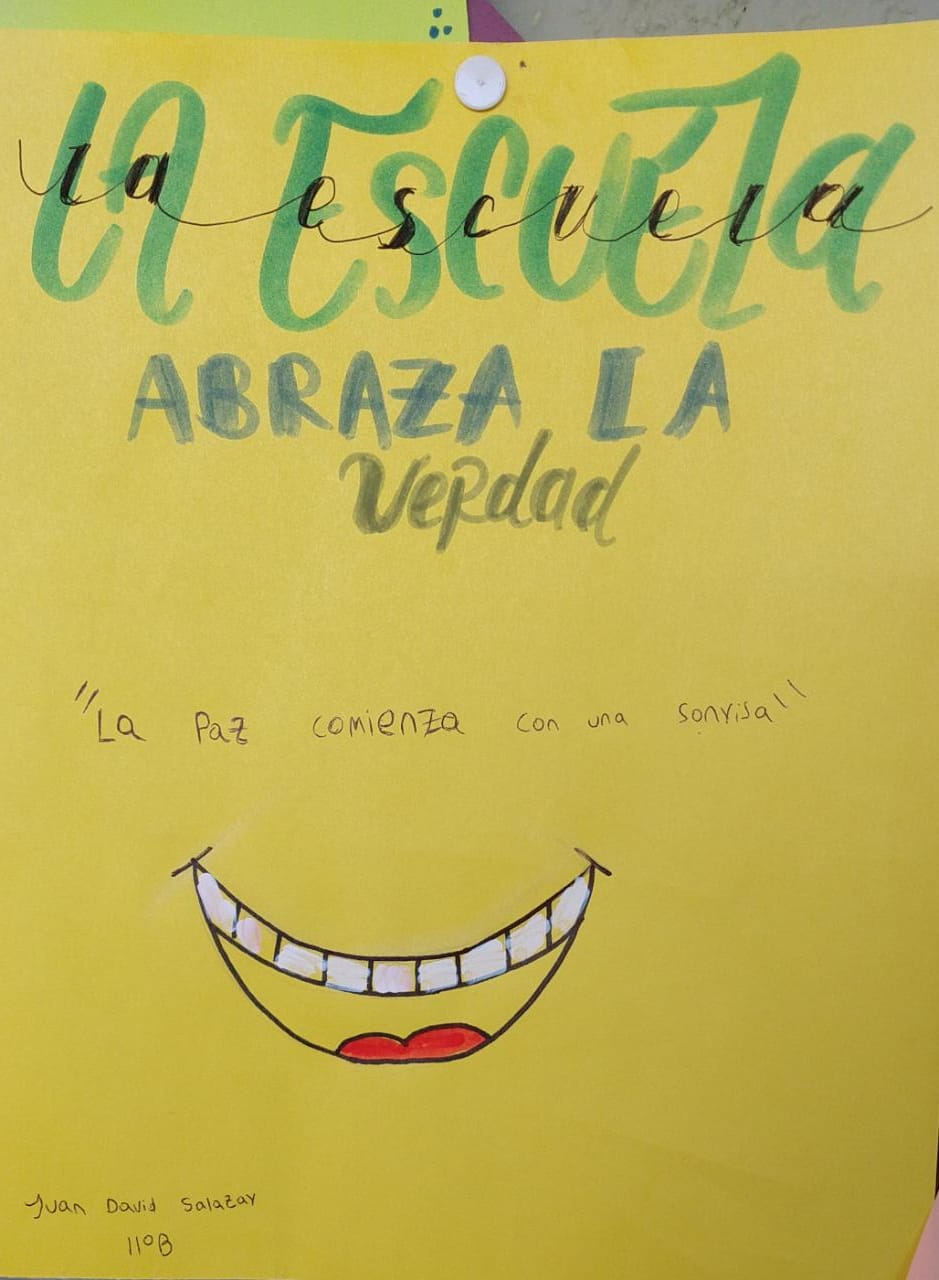 La Escuela
la escuela
ABRAZA LA
Verdad
"La Paz comienza con una sonrisa"
Juan David Salazar
11°B